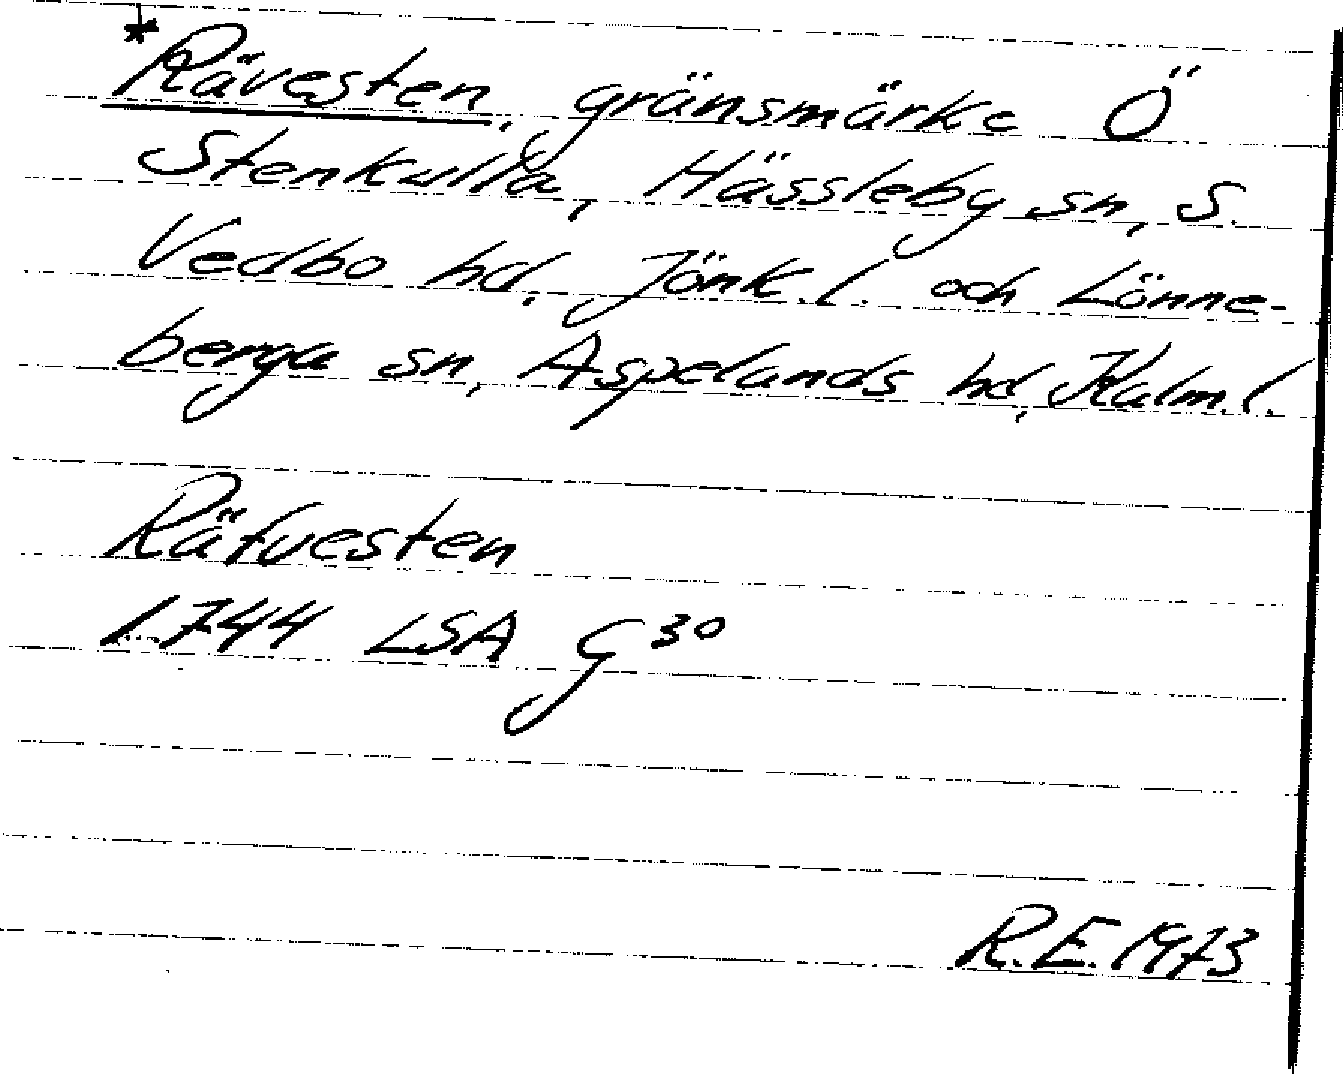 *Rävesten, gränsmärke Ö
Stenkulla, Hässleby sn, S.
Vedbo hd, Jönk.l. och Lönne-
berga sn, Aspelands hd, Kalm.l.
Räfvesten
1744 LSA G 30
R.E. 1973